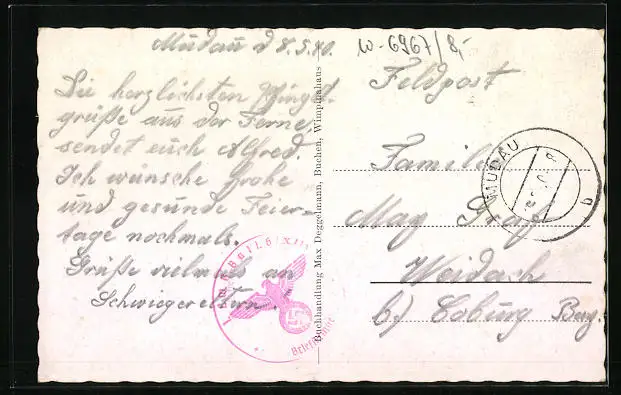 Mudau d 8.5.40.
Die herzlichsten Pfingst-
grüße aus der Ferne,
sendet euch Alfred.
Ich wünsche Frohe
und gesunde Feier-
tage nochmals.
Grüße vielmals an
Schwiegereltern.
Buchhandlung Max Deggelmann, Buchen, Wimpinahaus
w-6967/8,-
Feldpost
Familie
Max Graf
Weidach
b) Coburg Bay.
MUDAU
b
Briefstempel